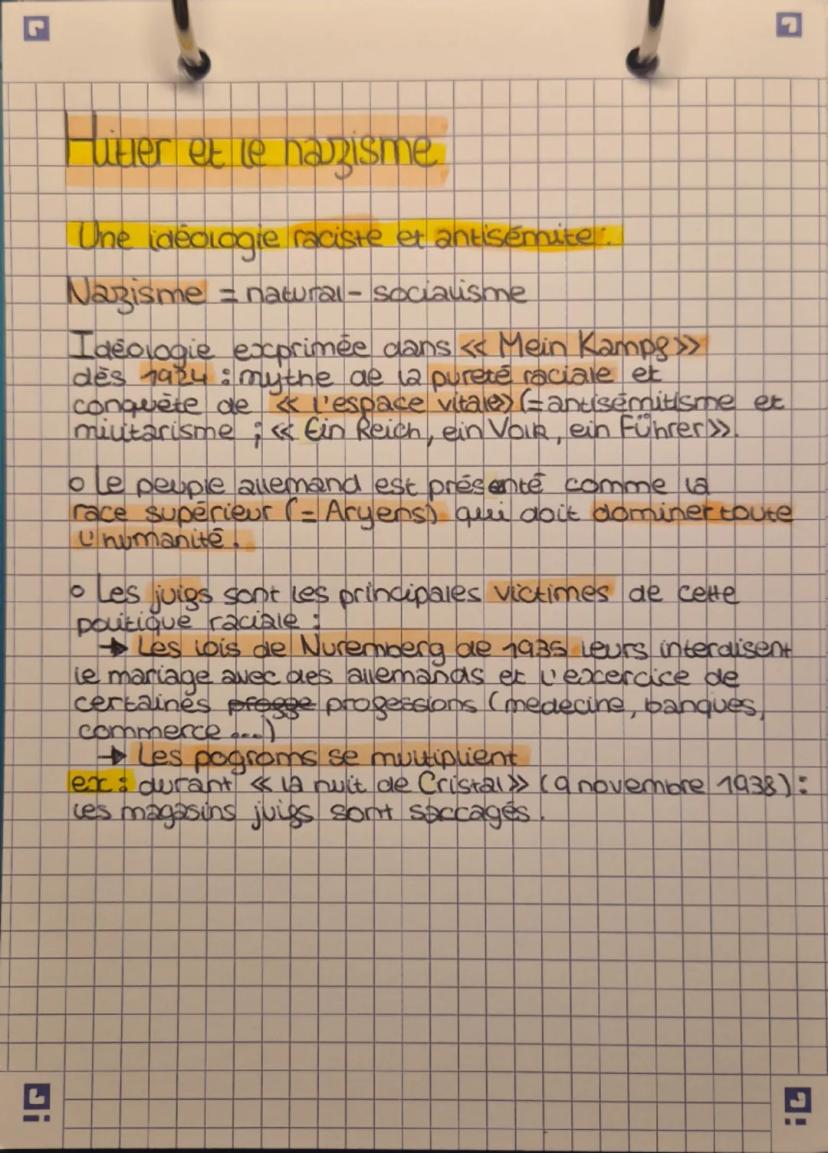 Hitler et le nazisme
Une idéologie raciste et antisémite.
Nazisme = natural - socialisme
Idéologie excprimée dans << Mein Kampf >>
dès 1924 : mythe de la pureté raciale et
conquête de << l'espace vitale >> (= antisémitisme et
militarisme ; << Ein Reich, ein Volk, ein Führer >>.
o Le peuple allemand est présenté comme la
race supérieur (= Aryens) qui doit dominer toute
l'humanité.
o Les juifs sont les principales victimes de cette
politique raciale :
→ Les lois de Nuremberg de 1935 leurs interdisent
le mariage avec des allemands et l'excercice de
certaines professions (medecine, banques,
commerce ...)
→ Les pogroms se multiplient
ex : durant << la nuit de Cristal >> (9 novembre 1938) :
les magasins juifs sont saccagés.